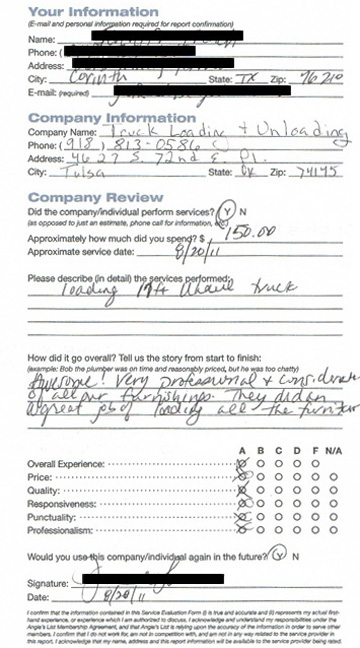 Your Information
(E-mail and personal information required for report confirmation)
Name:
Phone: (
Address:
City: Corinth State: TX Zip: 76210
E-mail: (required)
Company Information
Company Name: Truck Loading + Unloading
Phone: (918) 813-0586
Address: 4627 S. 72nd E. Pl.
City: Tulsa State: OK Zip: 74145
Company Review
Did the company/individual perform services? Y N
(as opposed to just an estimate, phone call for information, etc)
Approximately how much did you spend? $ 150.00
Approximate service date: 8/20/11
Please describe (in detail) the services performed:
loading 17ft Uhaul truck
How did it go overall? Tell us the story from start to finish:
(example: Bob the plumber was on time and reasonably priced, but he was too chatty)
Awesome! Very professional + considerate
of all our furnishings. They did an
a great job of loading all the furnitur
A B C D F N/A
Overall Experience:
Price:
Quality:
Responsiveness:
Punctuality:
Professionalism:
Would you use this company/individual again in the future? Y N
Signature:
Date: 8/20/11
I confirm that the information contained in this Service Evaluation Form (i) is true and accurate and (ii) represents my actual first-
hand experience, or experience which I am authorized to discuss. I acknowledge and understand my responsibilities under the
Angie's List Membership Agreement, and that Angie's List is relying upon the accuracy of the information in order to serve other
members. I confirm that I do not work for, am not in competition with, and am not in any way related to the service provider in
this report. I acknowledge that my name, address and this report information will be available to the service provider being rated.